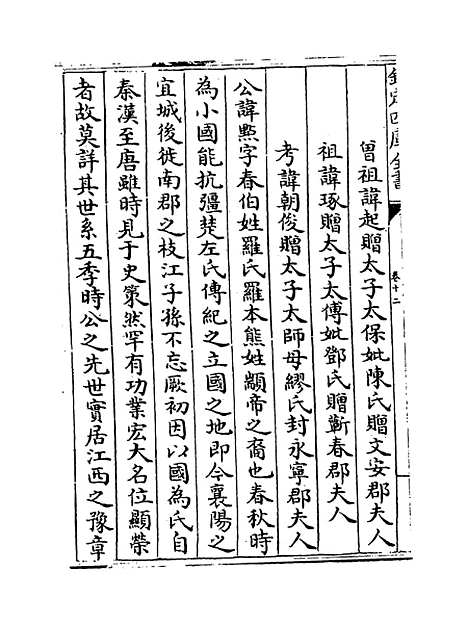 欽定四庫全書
卷十二
曽祖諱起贈太子太保妣陳氏贈文安郡夫人
祖諱琢贈太子太傅妣鄧氏贈蘄春郡夫人
考諱朝俊贈太子太師母繆氏封永寧郡夫人
公諱點字春伯姓羅氏羅本熊姓顓帝之裔也春秋時
為小國能抗彊楚左氏傳紀之立國之地即今襄陽之
宜城後徙南郡之枝江子孫不忘厥初因以國為氏自
秦漢至唐雖時見于史策然罕有功業宏大名位顯榮
者故莫詳其世系五季時公之先世實居江西之豫章